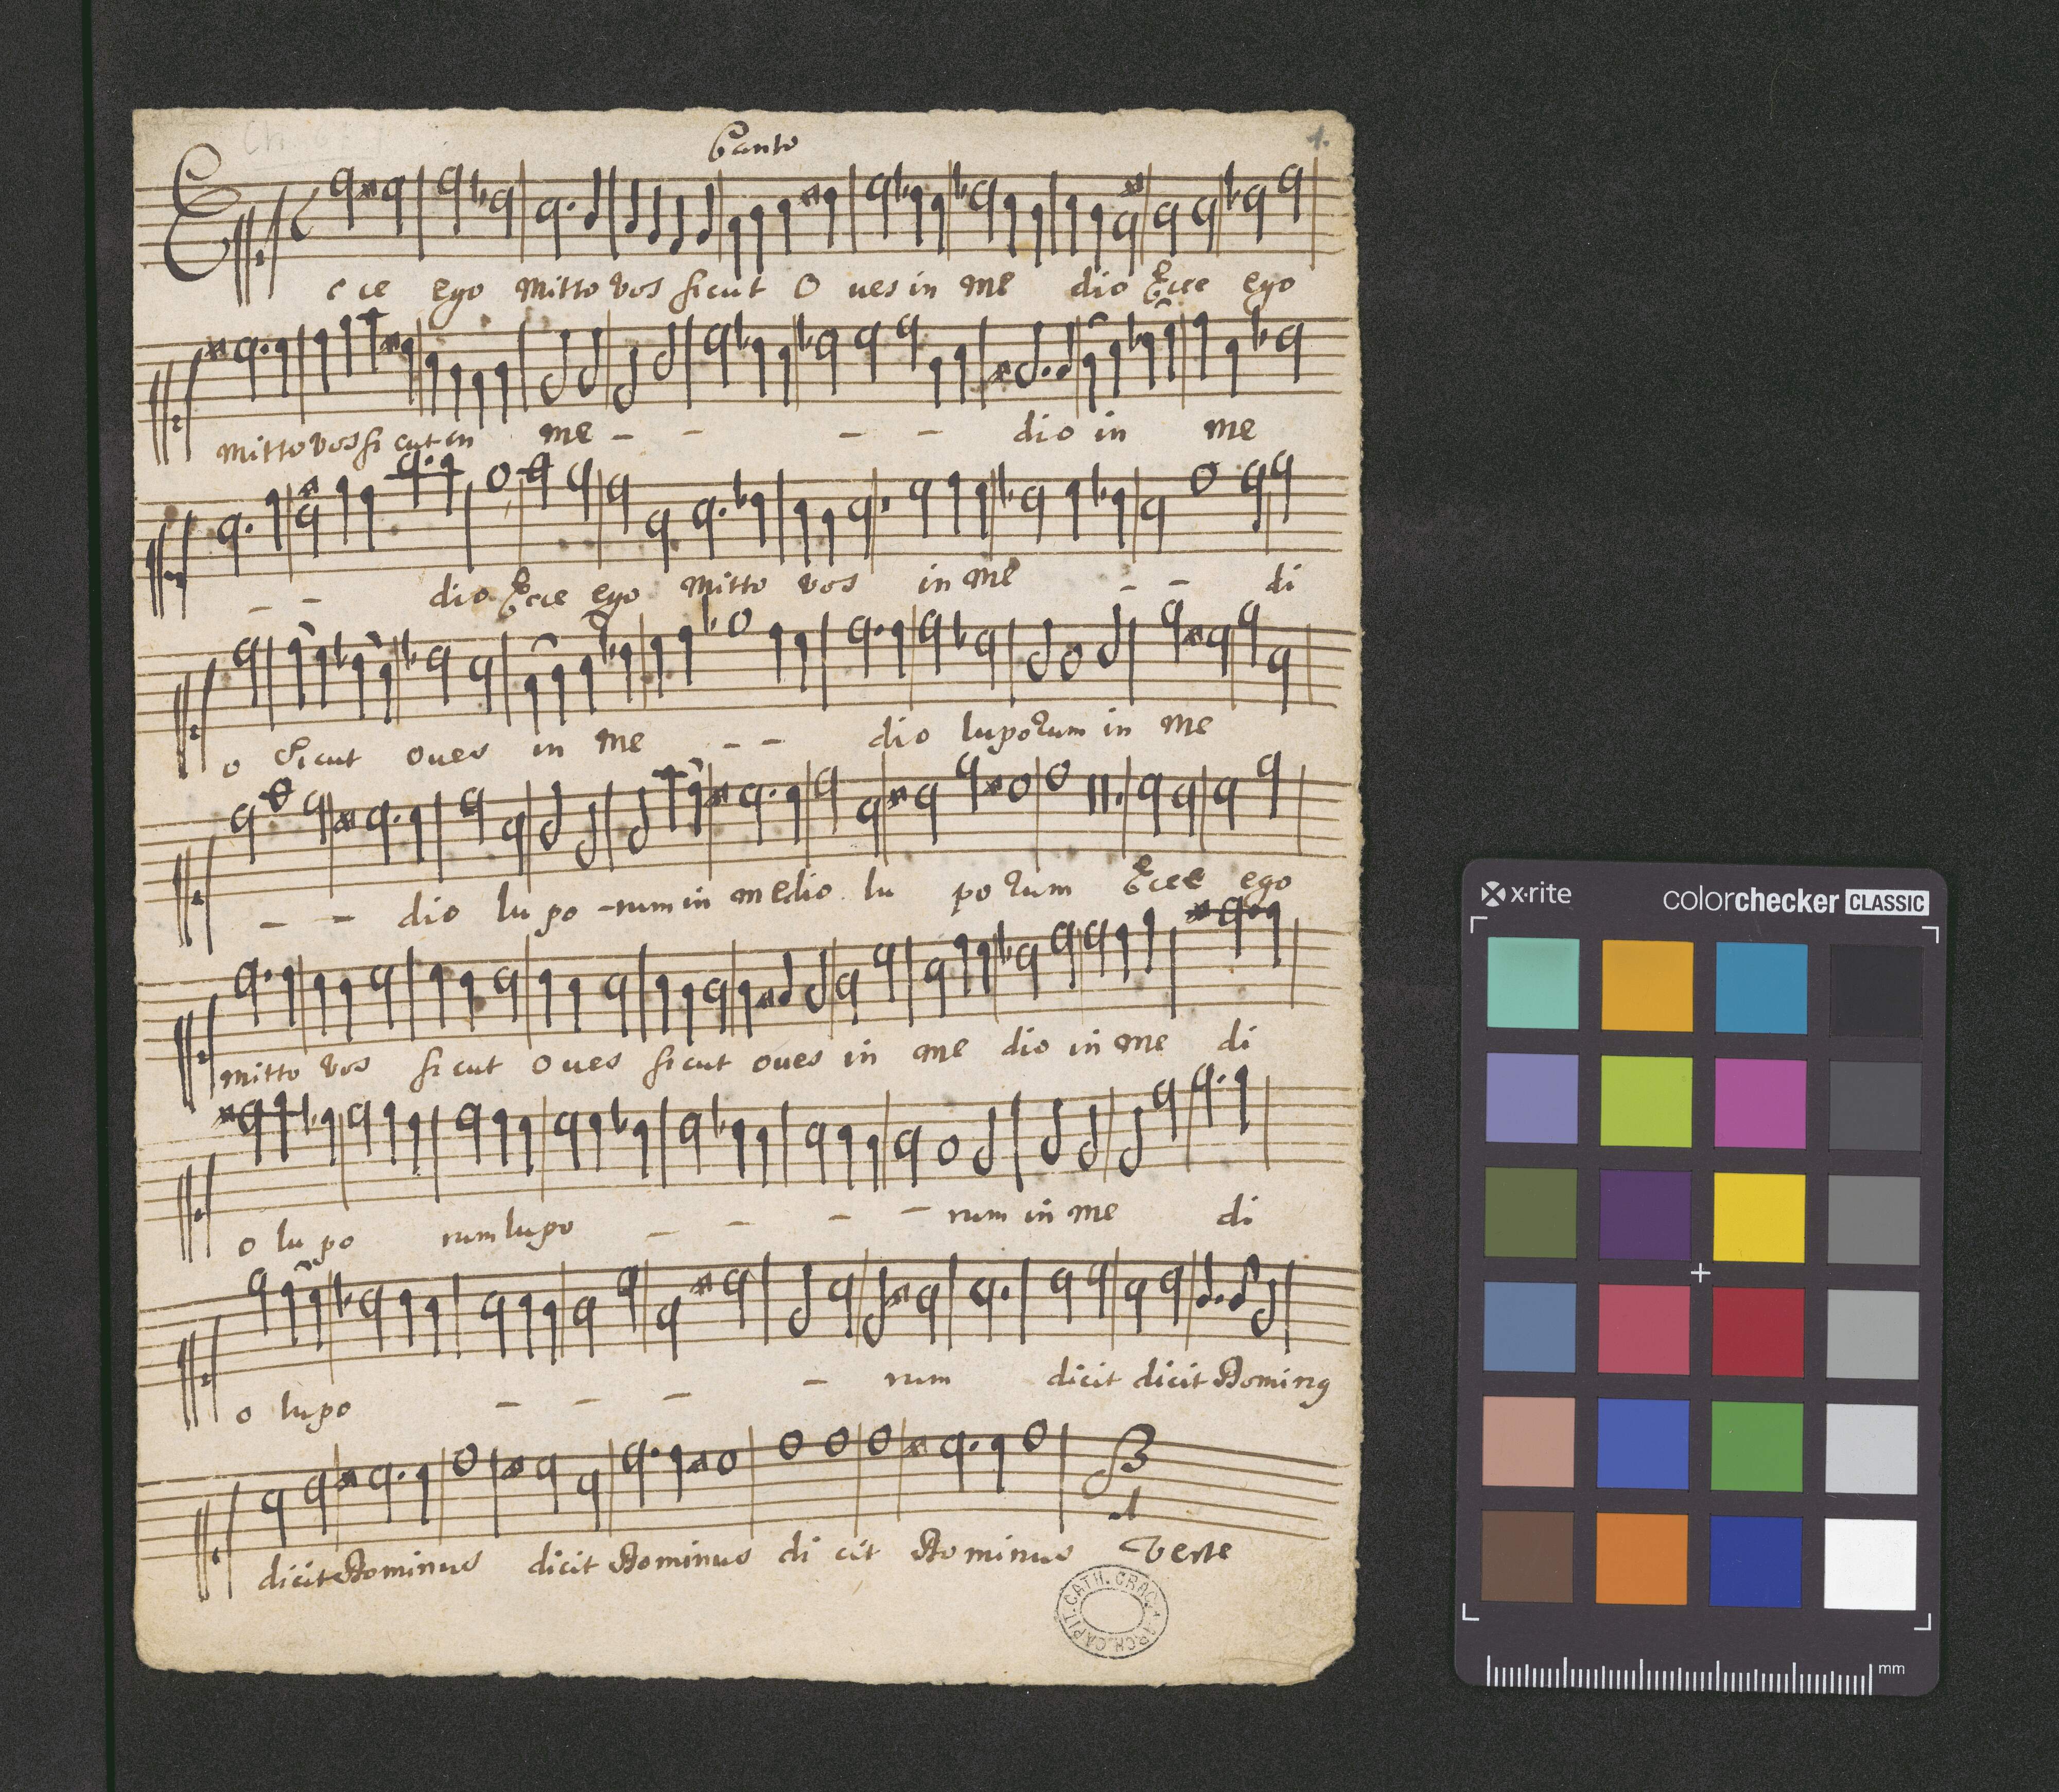 Canto
1.
Ecce ego Mitto vos sicut Oves in me dio Ecce ego
mitto vos sicut in me - - - - dio in me
- - dio Ecce ego mitto vos in me - - di
o Sicut oves in me - - dio luporum in me
- - dio lu po -rum in medio lu po rum Ecce ego
mitto vos sicut Oves sicut oves in me dio in me di
o lu po rum lupo - - - - rum in me di
o lupo - - - - rum dicit dicit Dominus
dicit Dominus dicit Dominus di cit Do minus Verte
ARCH. CAPIT. CATH. CRAC.
x·rite colorchecker CLASSIC
mm